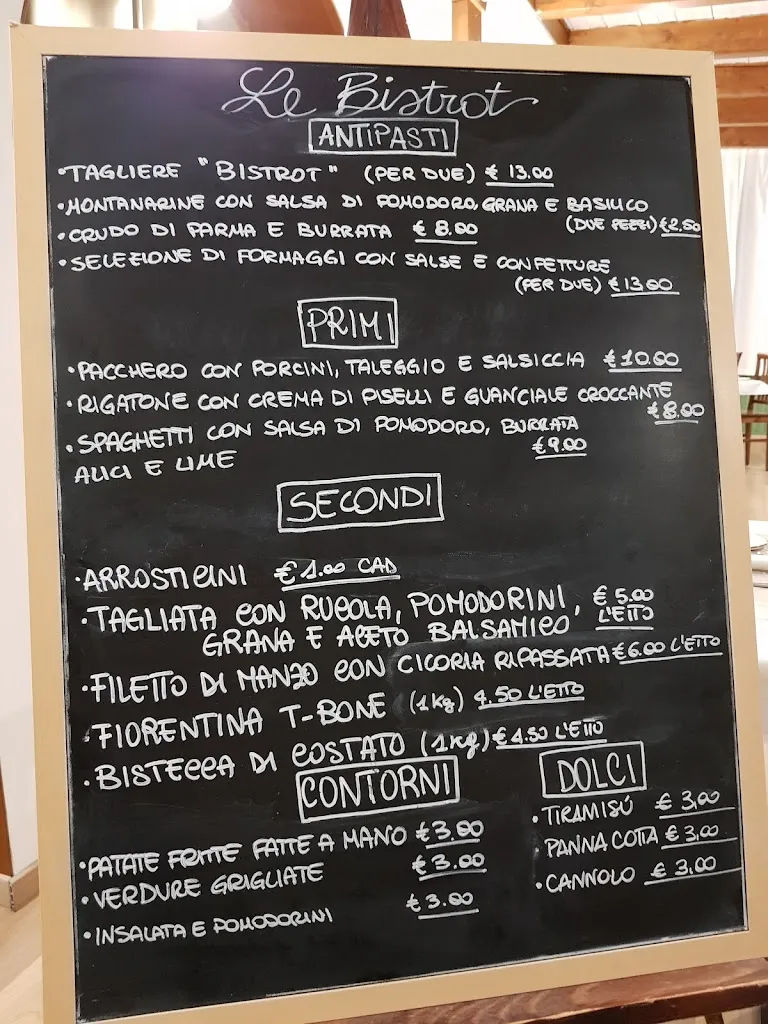 Le Bistrot
ANTIPASTI
• TAGLIERE "BISTROT" (PER DUE) € 13.00
• MONTANARINE CON SALSA DI POMODORO, GRANA E BASILICO
(DUE PEZZI) € 2.50
• CRUDO DI PARMA E BURRATA € 8.00
• SELEZIONE DI FORMAGGI CON SALSE E CONFETTURE
(PER DUE) € 13.00
PRIMI
• PACCHERO CON PORCINI, TALEGGIO E SALSICCIA € 10.00
• RIGATONE CON CREMA DI PISELLI E GUANCIALE CROCCANTE
€ 8.00
• SPAGHETTI CON SALSA DI POMODORO, BURRATA
€ 9.00
ALICI E LIME
SECONDI
• ARROSTICINI € 1.00 CAD
• TAGLIATA CON RUCOLA, POMODORINI, € 5.00
GRANA E ACETO BALSAMICO L'ETTO
• FILETTO DI MANZO CON CICORIA RIPASSATA € 6.00 L'ETTO
• FIORENTINA T-BONE (1Kg) 4.50 L'ETTO
• BISTECCA DI COSTATO (1Kg) € 4.50 L'ETTO
CONTORNI
• PATATE FRITTE FATTE A MANO € 3.00
• VERDURE GRIGLIATE € 3.00
• INSALATA E POMODORINI € 3.00
DOLCI
• TIRAMISÚ € 3,00
• PANNA COTTA € 3,00
• CANNOLO € 3,00